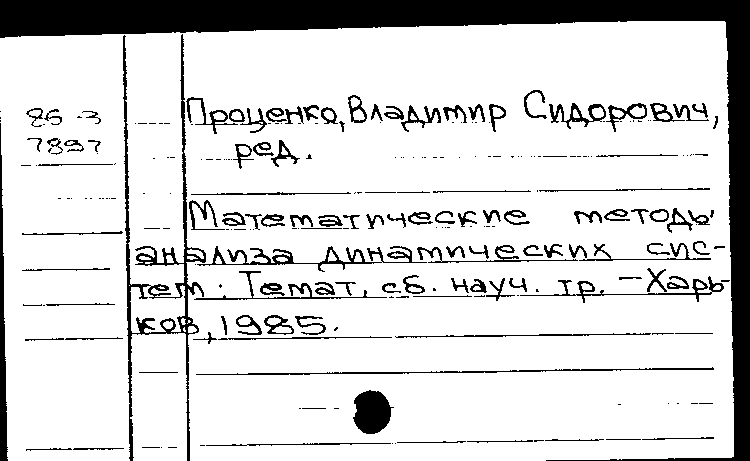 86-3
7897
Проценко, Владимир Сидорович,
ред.
Математические методы
анализа динамических сис-
тем: Темат. сб. науч. тр. - Харь-
ков, 1985.